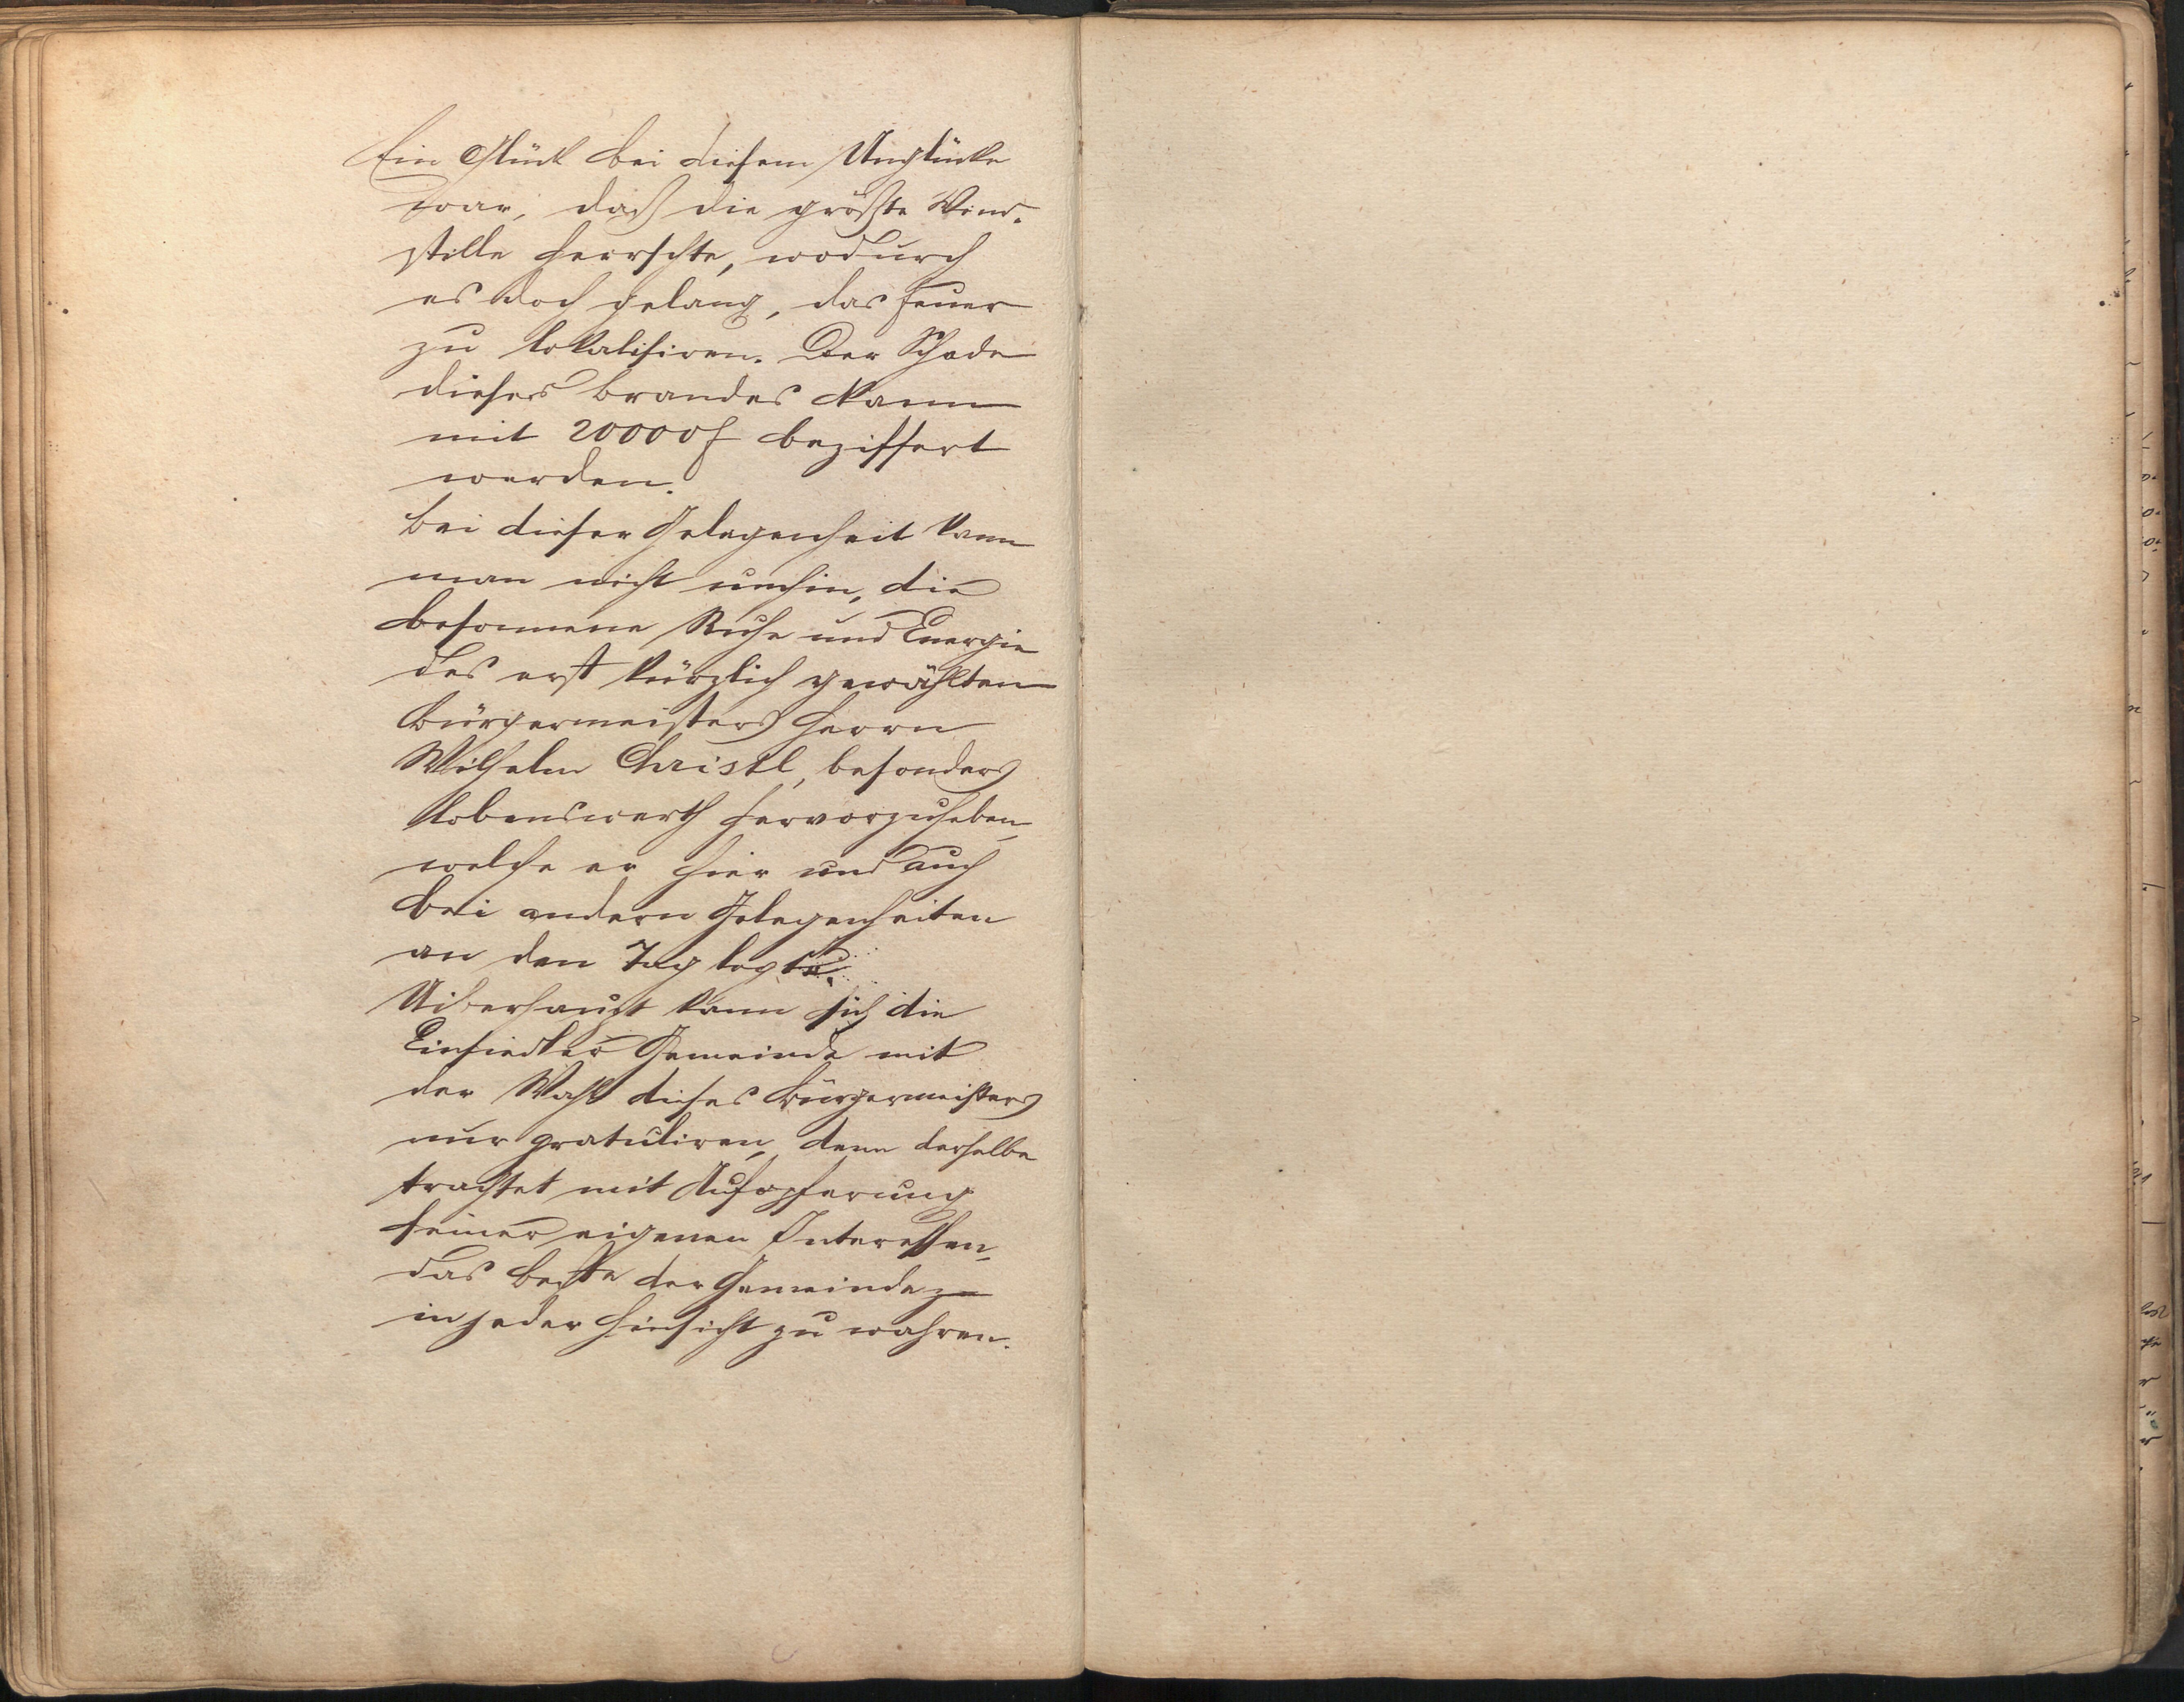 Ein Glück bei diesem Unglücke
war, daß die größte Wind-
stille herrschte, wodurch
es doch gelang, das Feuer
zu lokalisiren. Der Schade
dieses Brandes kann
mit 20000 f beziffert
werden.
Bei dieser Gelegenheit kann
man nicht umhin, die
besonnene Ruhe und Energie
des erst kürzlich gewählten
Bürgermeisters Herrn
Wilhelm Christl, besonders
lobenswerth hervorzuheben,
welche er hier und auch
bei andern Gelegenheiten
an den Tag legte.
Uiberhaupt kann sich die
Einsiedler Gemeinde mit
der Wahl dieses Bürgermeisters
nur gratuliren, denn derselbe
trachtet mit Aufopferung
seiner eigenen Interessen,
das Beste der Gemeinde zu
in jeder Hinsicht zu wahren.